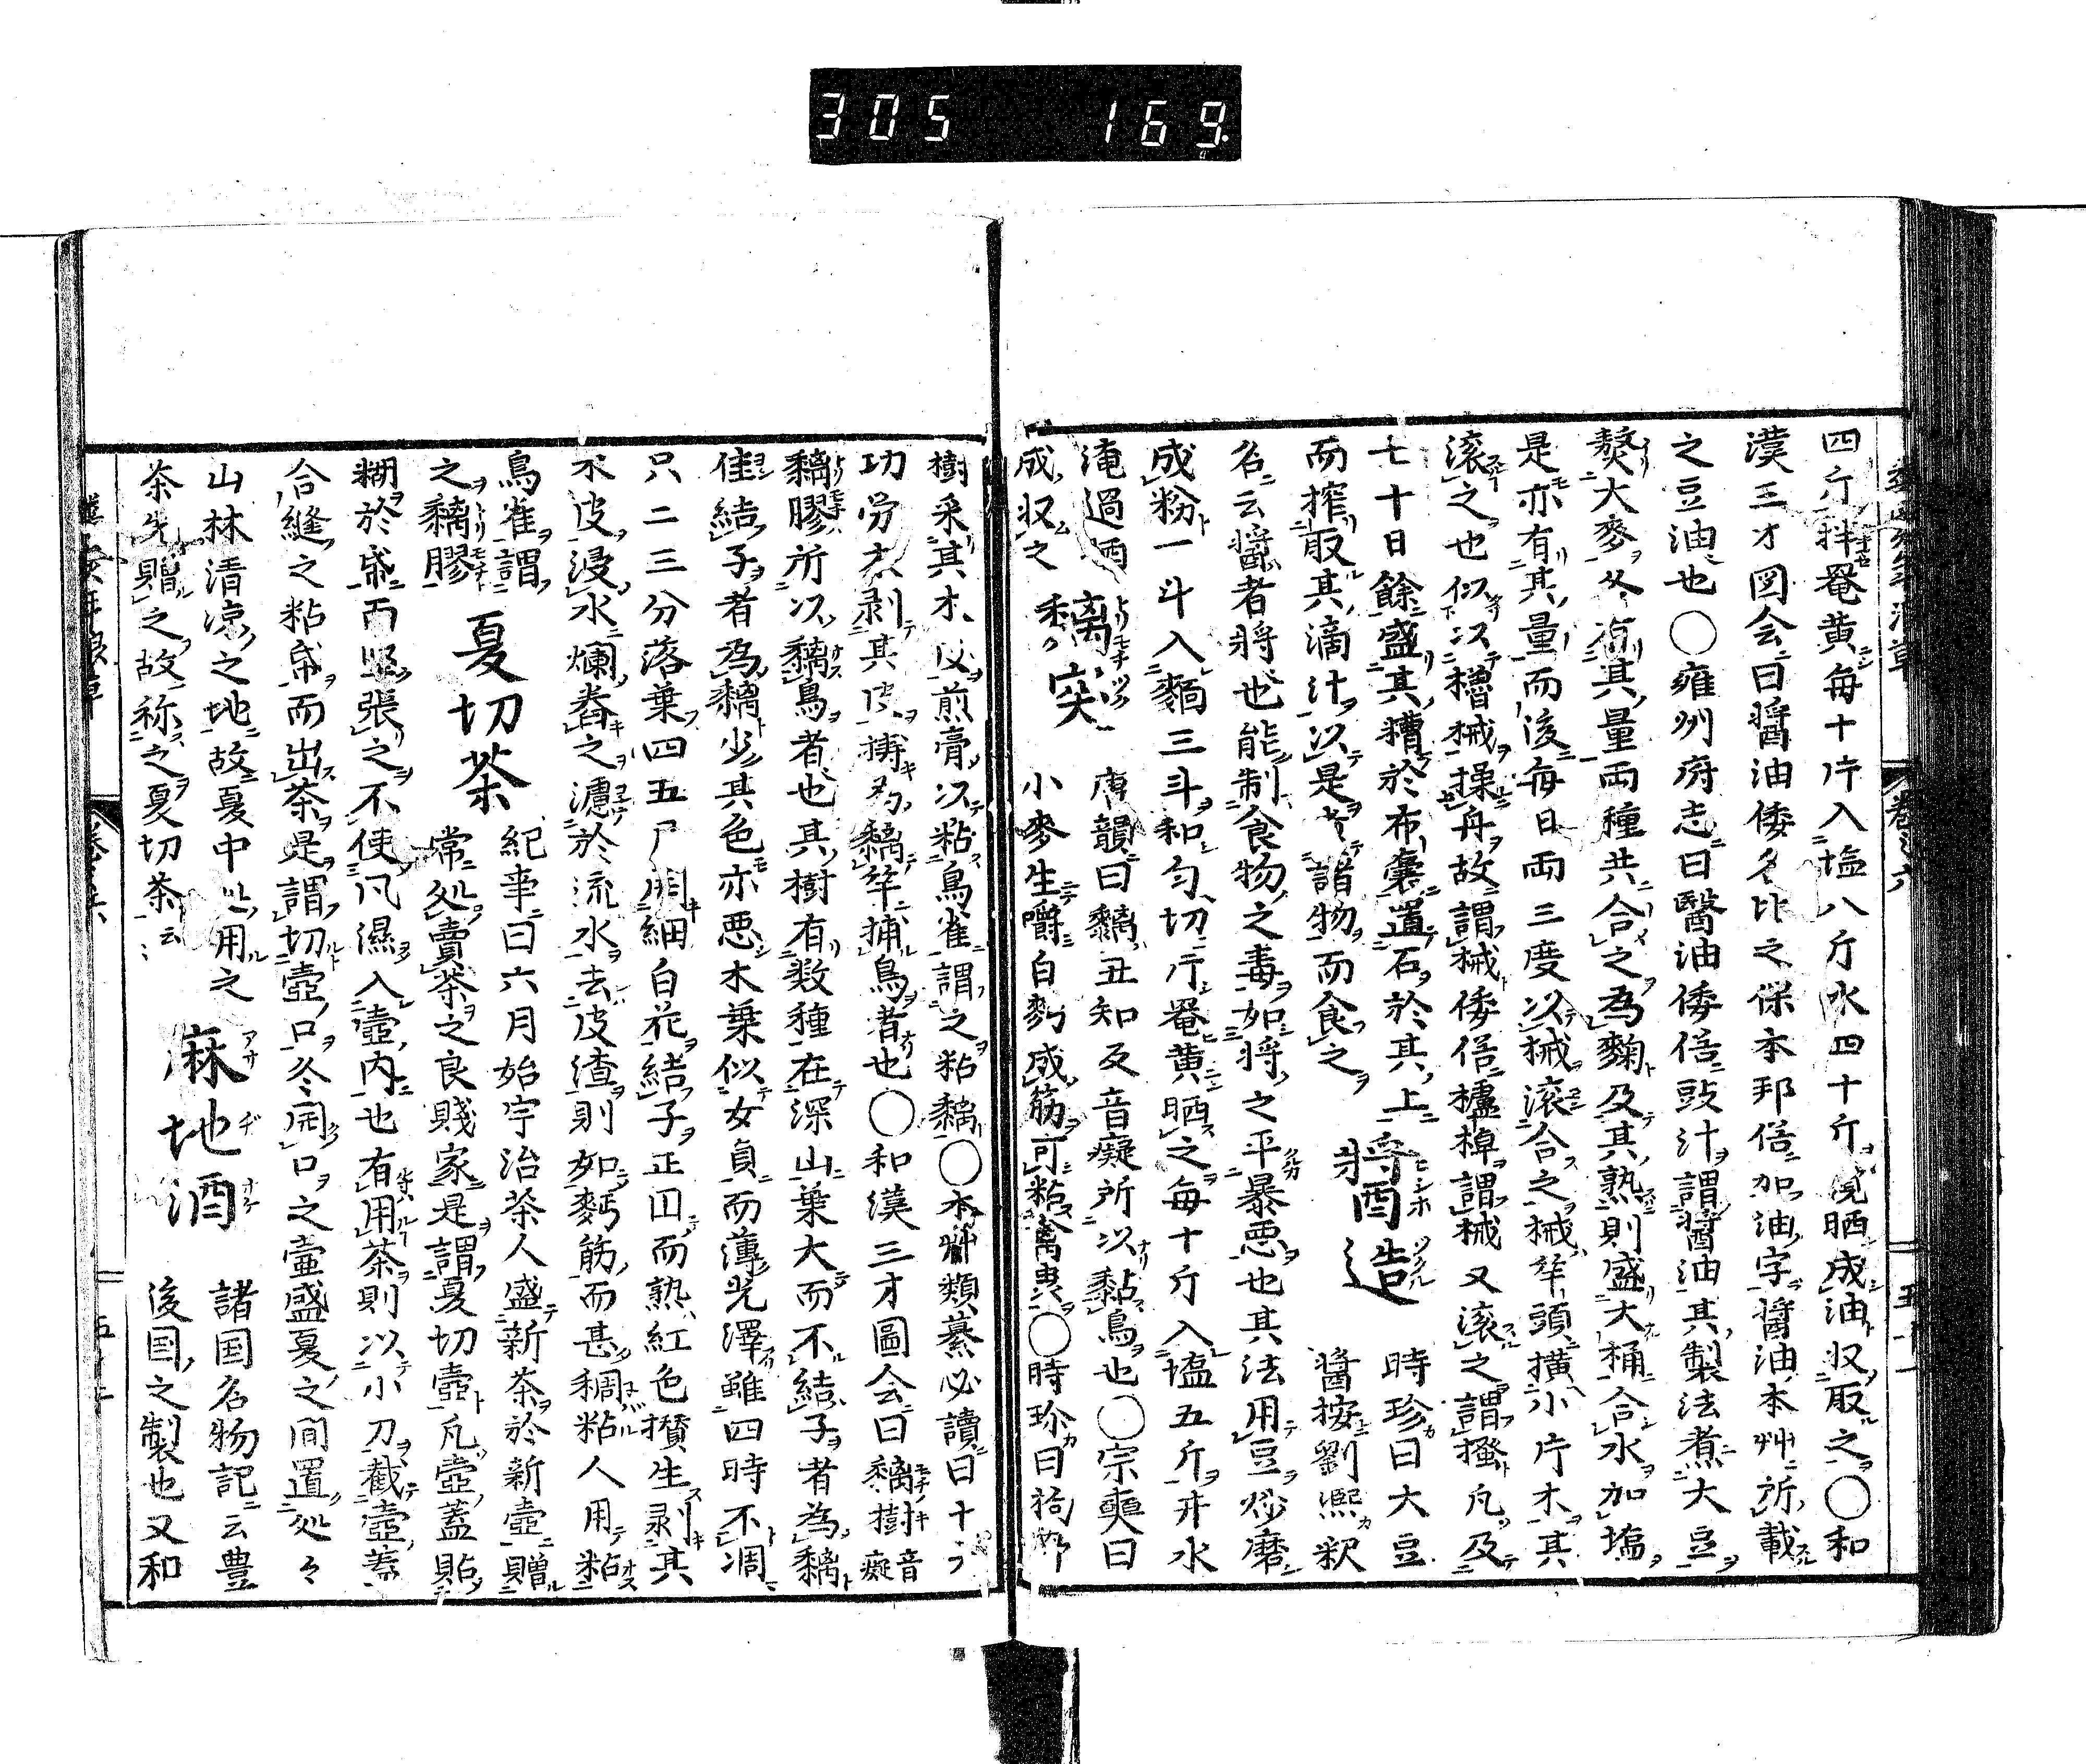 305 169
四斤拌罨黄每十斤入塩八斤水四十斤晒成油収取之〇和
漢三才図会曰醤油倭名比之保本邦俗加油字醤油本艸所載
之豆油也〇雍州府志曰醫油倭俗豉汁謂醤油其製法煮大豆
熬大麥各有其量両種共合之為麴及其熟則盛大桶合水加塩
是亦有其量而後每日両三度以械滚合之械竿頭横小片木其
滚之也似以櫓械操舟故謂械倭俗櫨棹謂械又滚之謂掻凡及
七十日餘盛其糟於布嚢置石於其上
而搾取其滴汁以是煮諸物而食之
醤造 ヒシホツクル
時珍曰大豆
醤按劉熙釈
名云醤者将也能制食物之毒如将之平暴悪也其法用豆炒磨
成粉一斗入麺三斗和匀切片罨黄晒之每十斤入塩五斤井水
淹過晒
成収之
黐突 トリモチツク
唐韻曰黐丑知反音癡所以黏鳥也〇宗奭曰
小麥生嚼白麪成筋可粘禽虫〇時珍曰
樹采其木皮煎膏以粘鳥雀謂之粘黐〇本艸類纂必読曰十
功労木剥其皮搗為黐竿捕鳥者也〇和漢三才圖会曰黐樹音癡
黐膠所以黐鳥者也其樹有数種在深山葉大而不結子者為黐
佳結子者為黐少其色亦悪木葉似女貞而薄光澤雖四時不凋
只二三分落葉四五月開細白花結子正円而熟紅色攅生剥其
木皮浸水爛舂之濾於流水去皮渣則如麪筋而甚稠粘人用粘
鳥雀謂
之黐膠
夏切茶
紀事曰六月始宇治茶人盛新茶於新壺贈
常処賣茶之良賤家是謂夏切壺凡壺蓋貼
糊於帋而堅張之不使凡濕入壺内也有用茶則以小刀截壺蓋
合縫之粘帋而出茶是謂切壺口冬開口之壷盛夏之間置処々
山林清凉之地故夏中此用之
茶先贈之故称之夏切茶云々
麻地酒 アサヂザケ
諸国名物記云豊
後国之製也又和